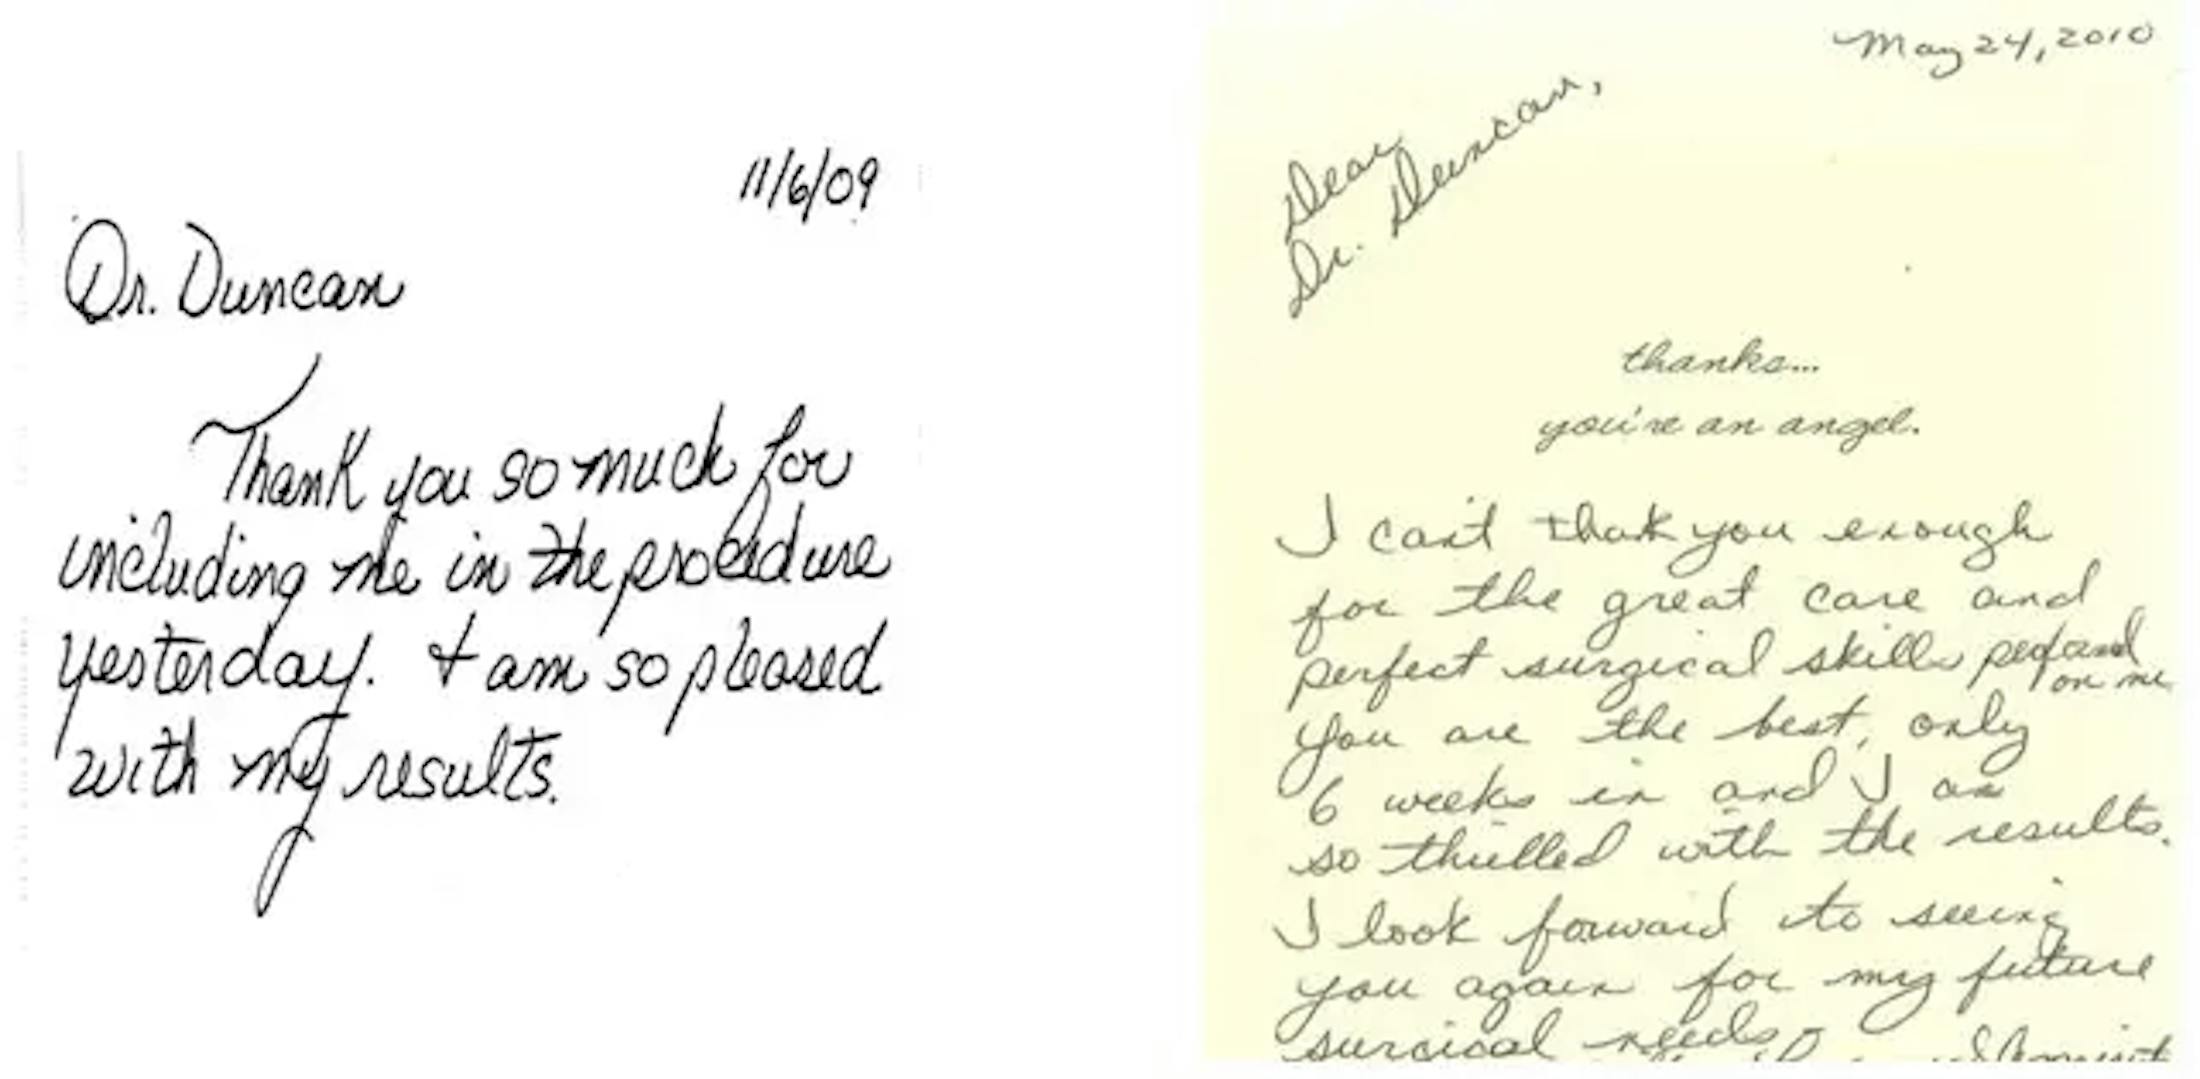 11/6/09
Dr. Duncan
Thank you so much for
including me in the procedure
yesterday. I am so pleased
with my results.
May 24, 2010
Dear
Dr. Duncan,
thanks...
you're an angel.
I can't thak you enough
for the great care and
perfect surgical skills
on me
You are the best, only
6 weeks in and I am
so thrilled with the results.
I look forward to seeing
you again for my future
surgical needs